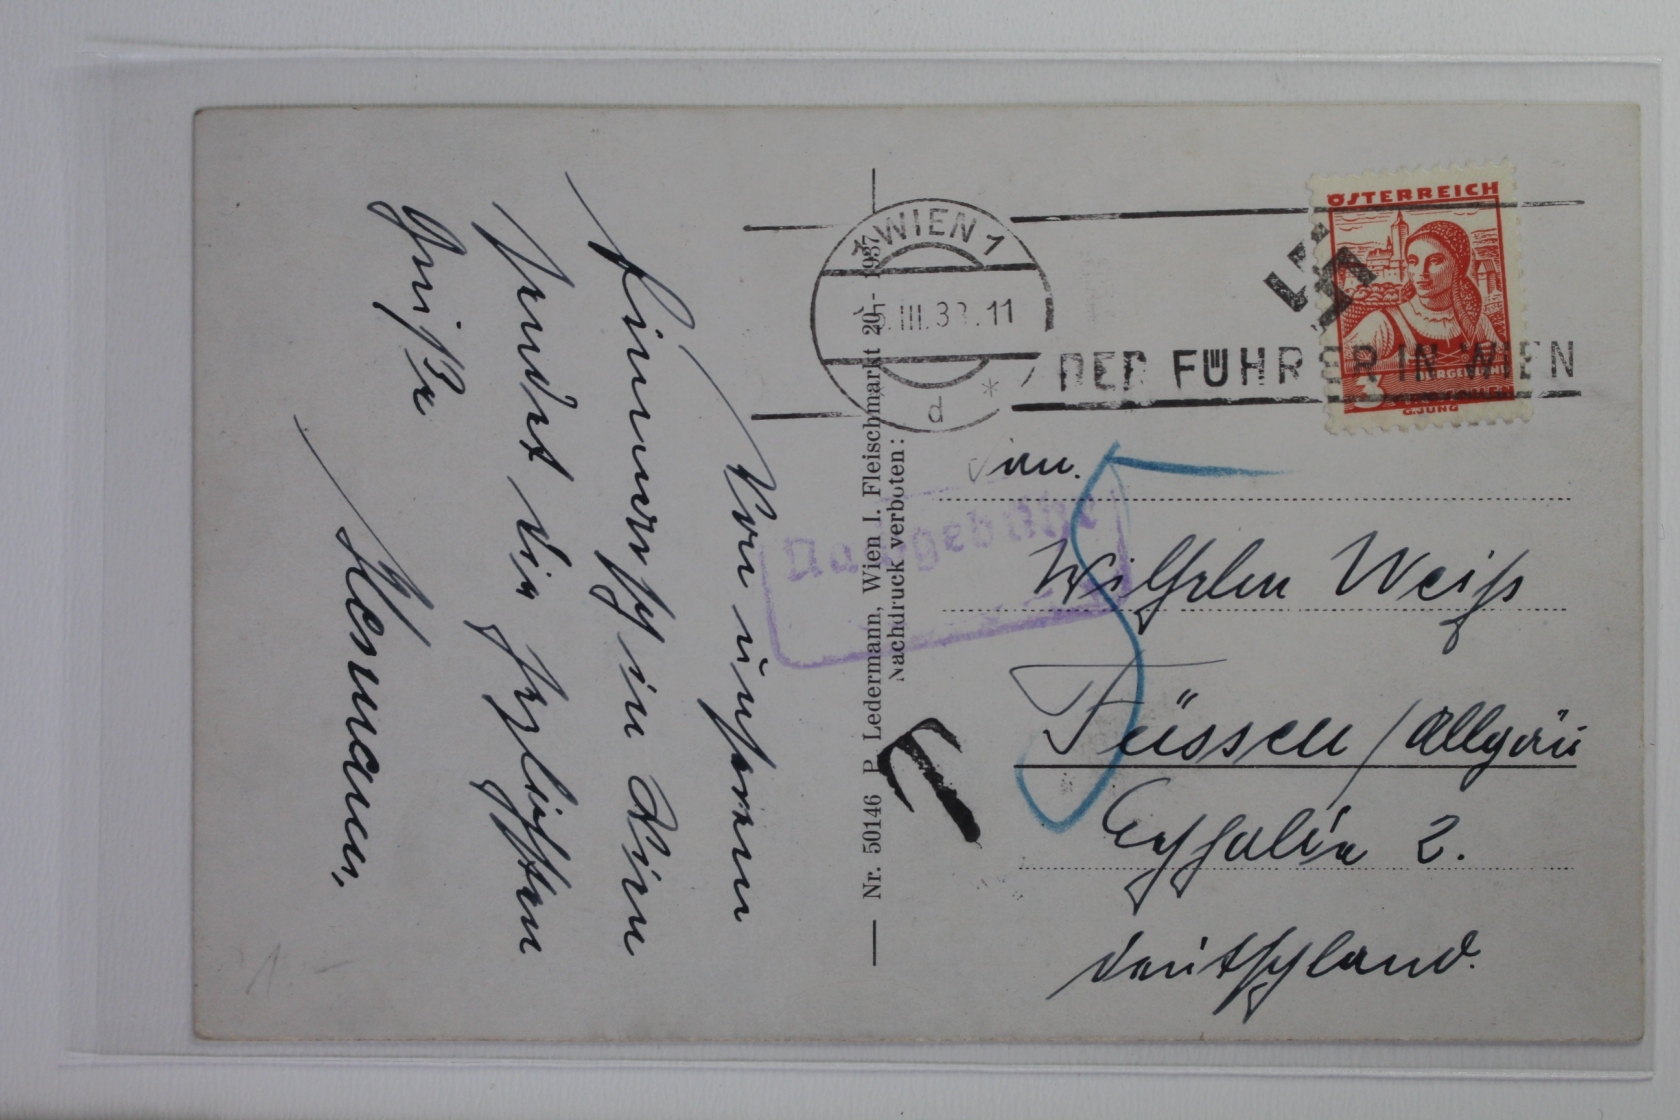 Von unserem
Einmarsch in Wien
sendet die herzlichsten
Grüße
Hermann.
Nr. 50146 P. Ledermann, Wien I. Fleischmarkt 20 - 1937
Nachdruck verboten:
1 WIEN 1
5.III.38.11
d *
DER FÜHRER IN WIEN
ÖSTERREICH
BURGENLAND
3 GROSCHEN
G.JUNG
Nachgebühr
T
5
Fam.
Wilhelm Weiß
Füssen / Allgäu
2.
Deutschland.